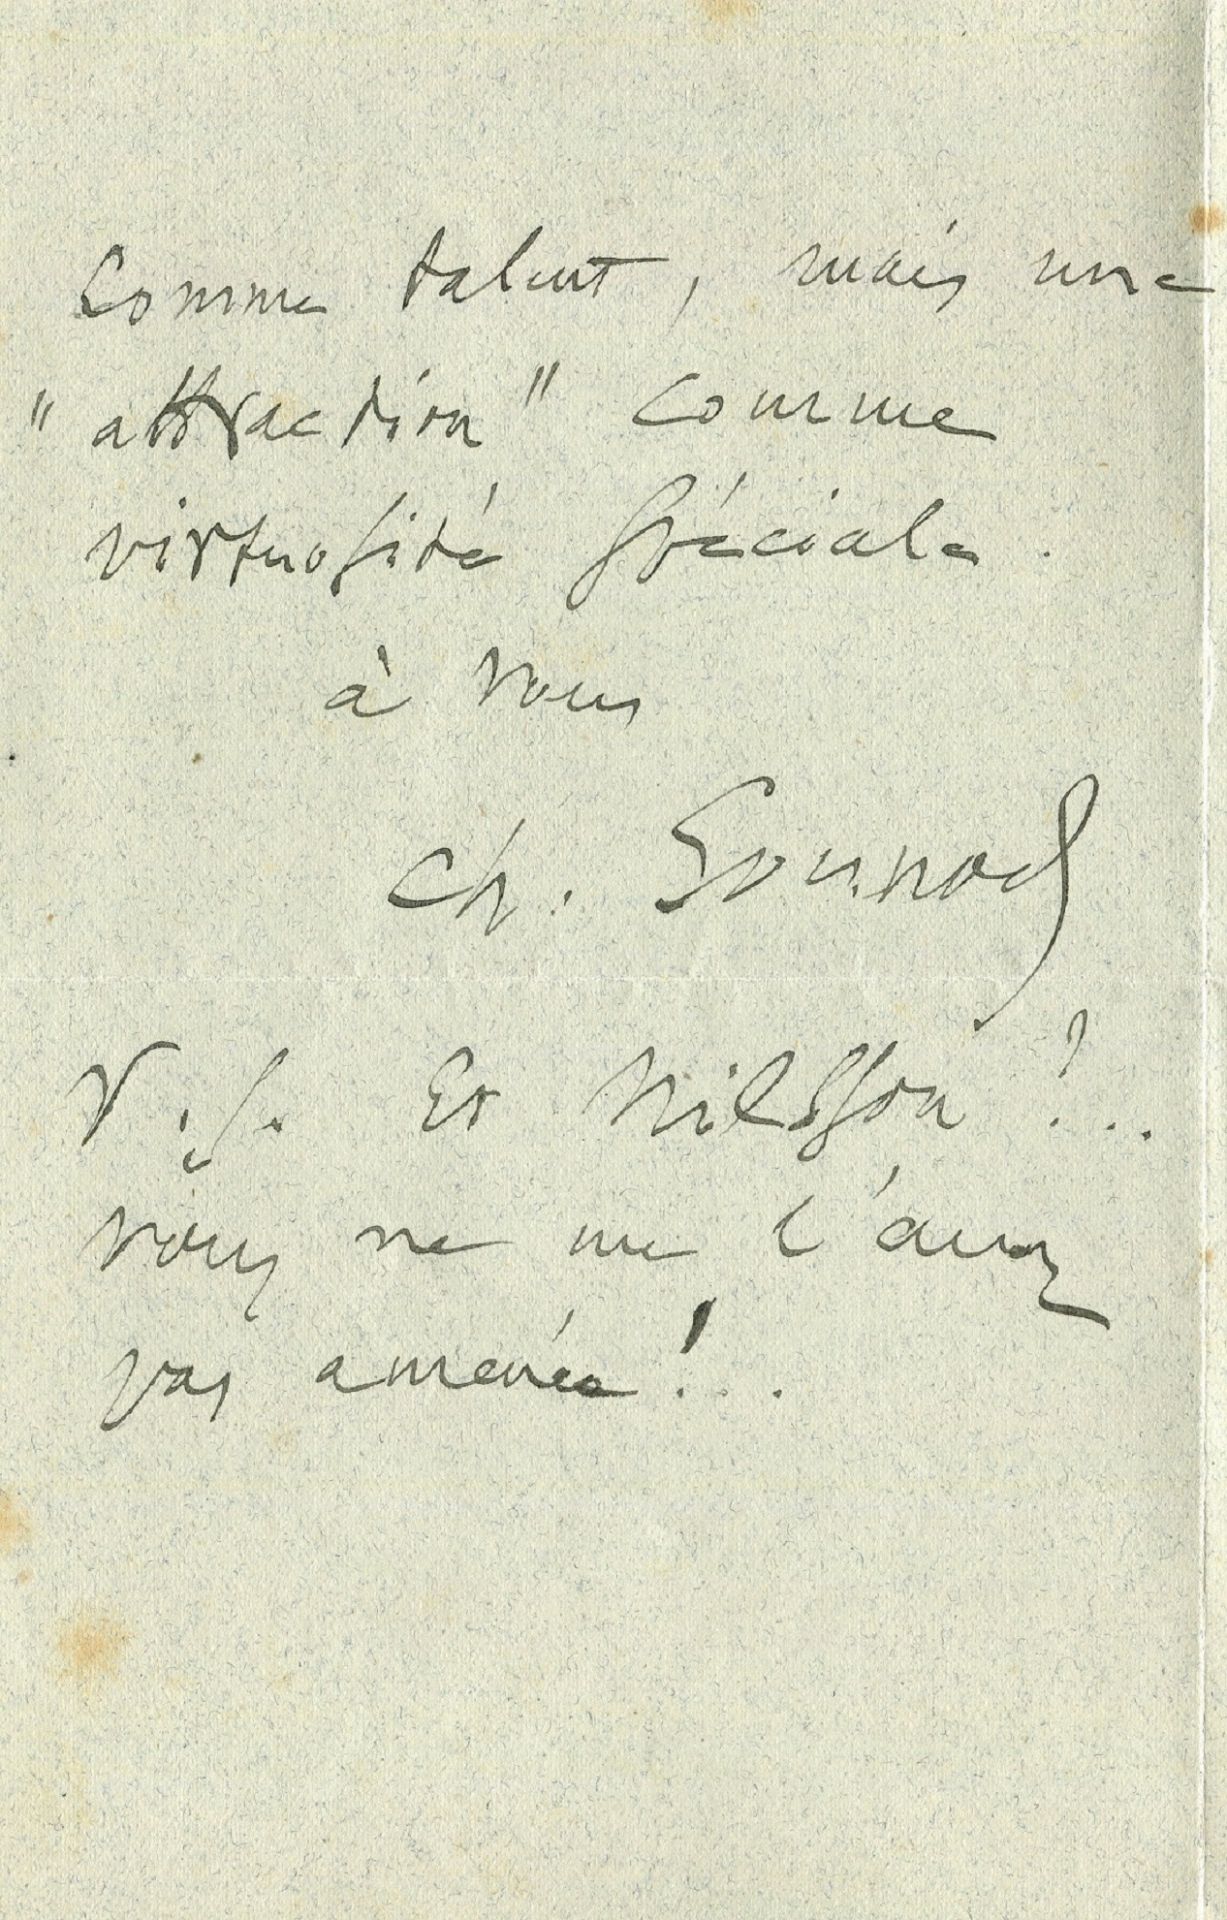 comme talent, mais une
"attraction" comme
virtuosité spéciale.
à vous
Ch. Gounod
P.S. Et Nilsson?...
vous ne me l'avez
pas amenée!...